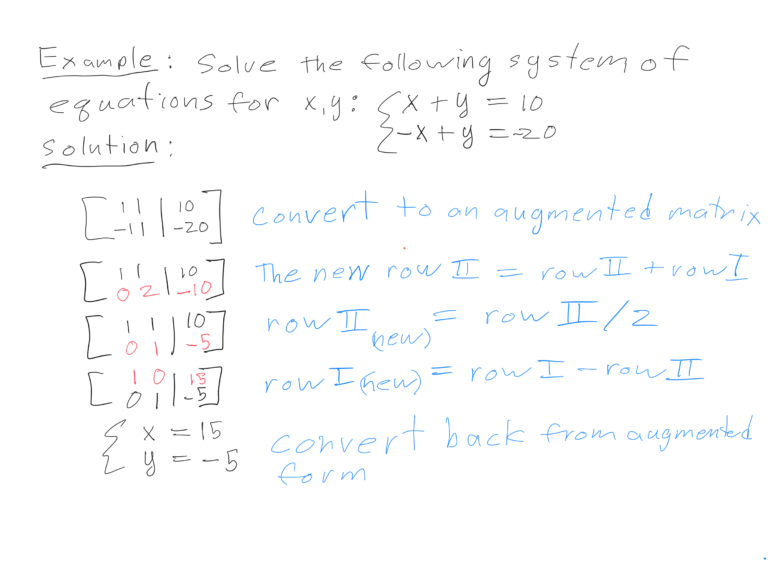 Example: Solve the following system of
equations for x,y: { x + y = 10
-x + y = -20
Solution:
[ 1 1 | 10
-1 1 | -20 ] convert to an augmented matrix
[ 1 1 | 10
0 2 | -10 ] The new row II = row II + row I
[ 1 1 | 10
0 1 | -5 ] row II (new) = row II / 2
[ 1 0 | 15
0 1 | -5 ] row I (new) = row I - row II
{ x = 15
y = -5 convert back from augmented
form